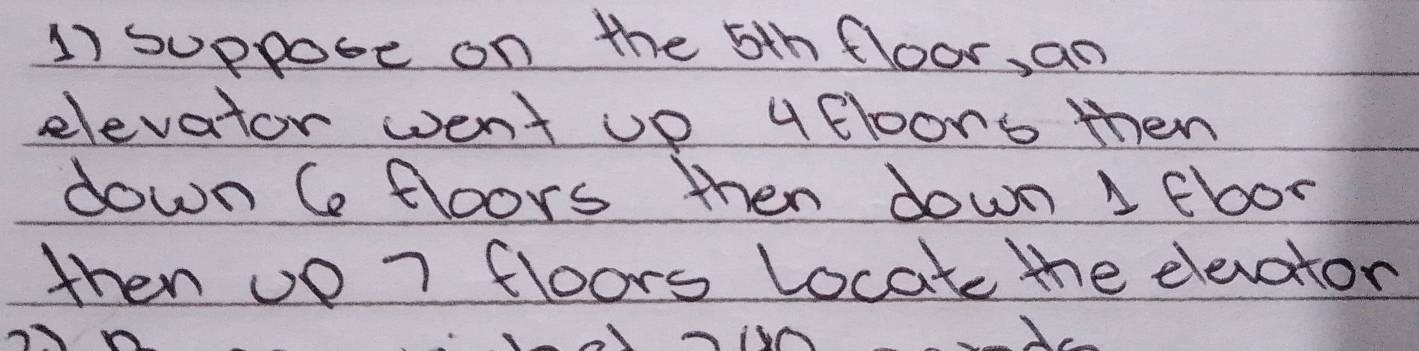 1) Suppose on the 5th floor, an
elevator went up 4 floors then
down 6 floors then down 1 floor
then up 7 floors Locate the elevator
2)